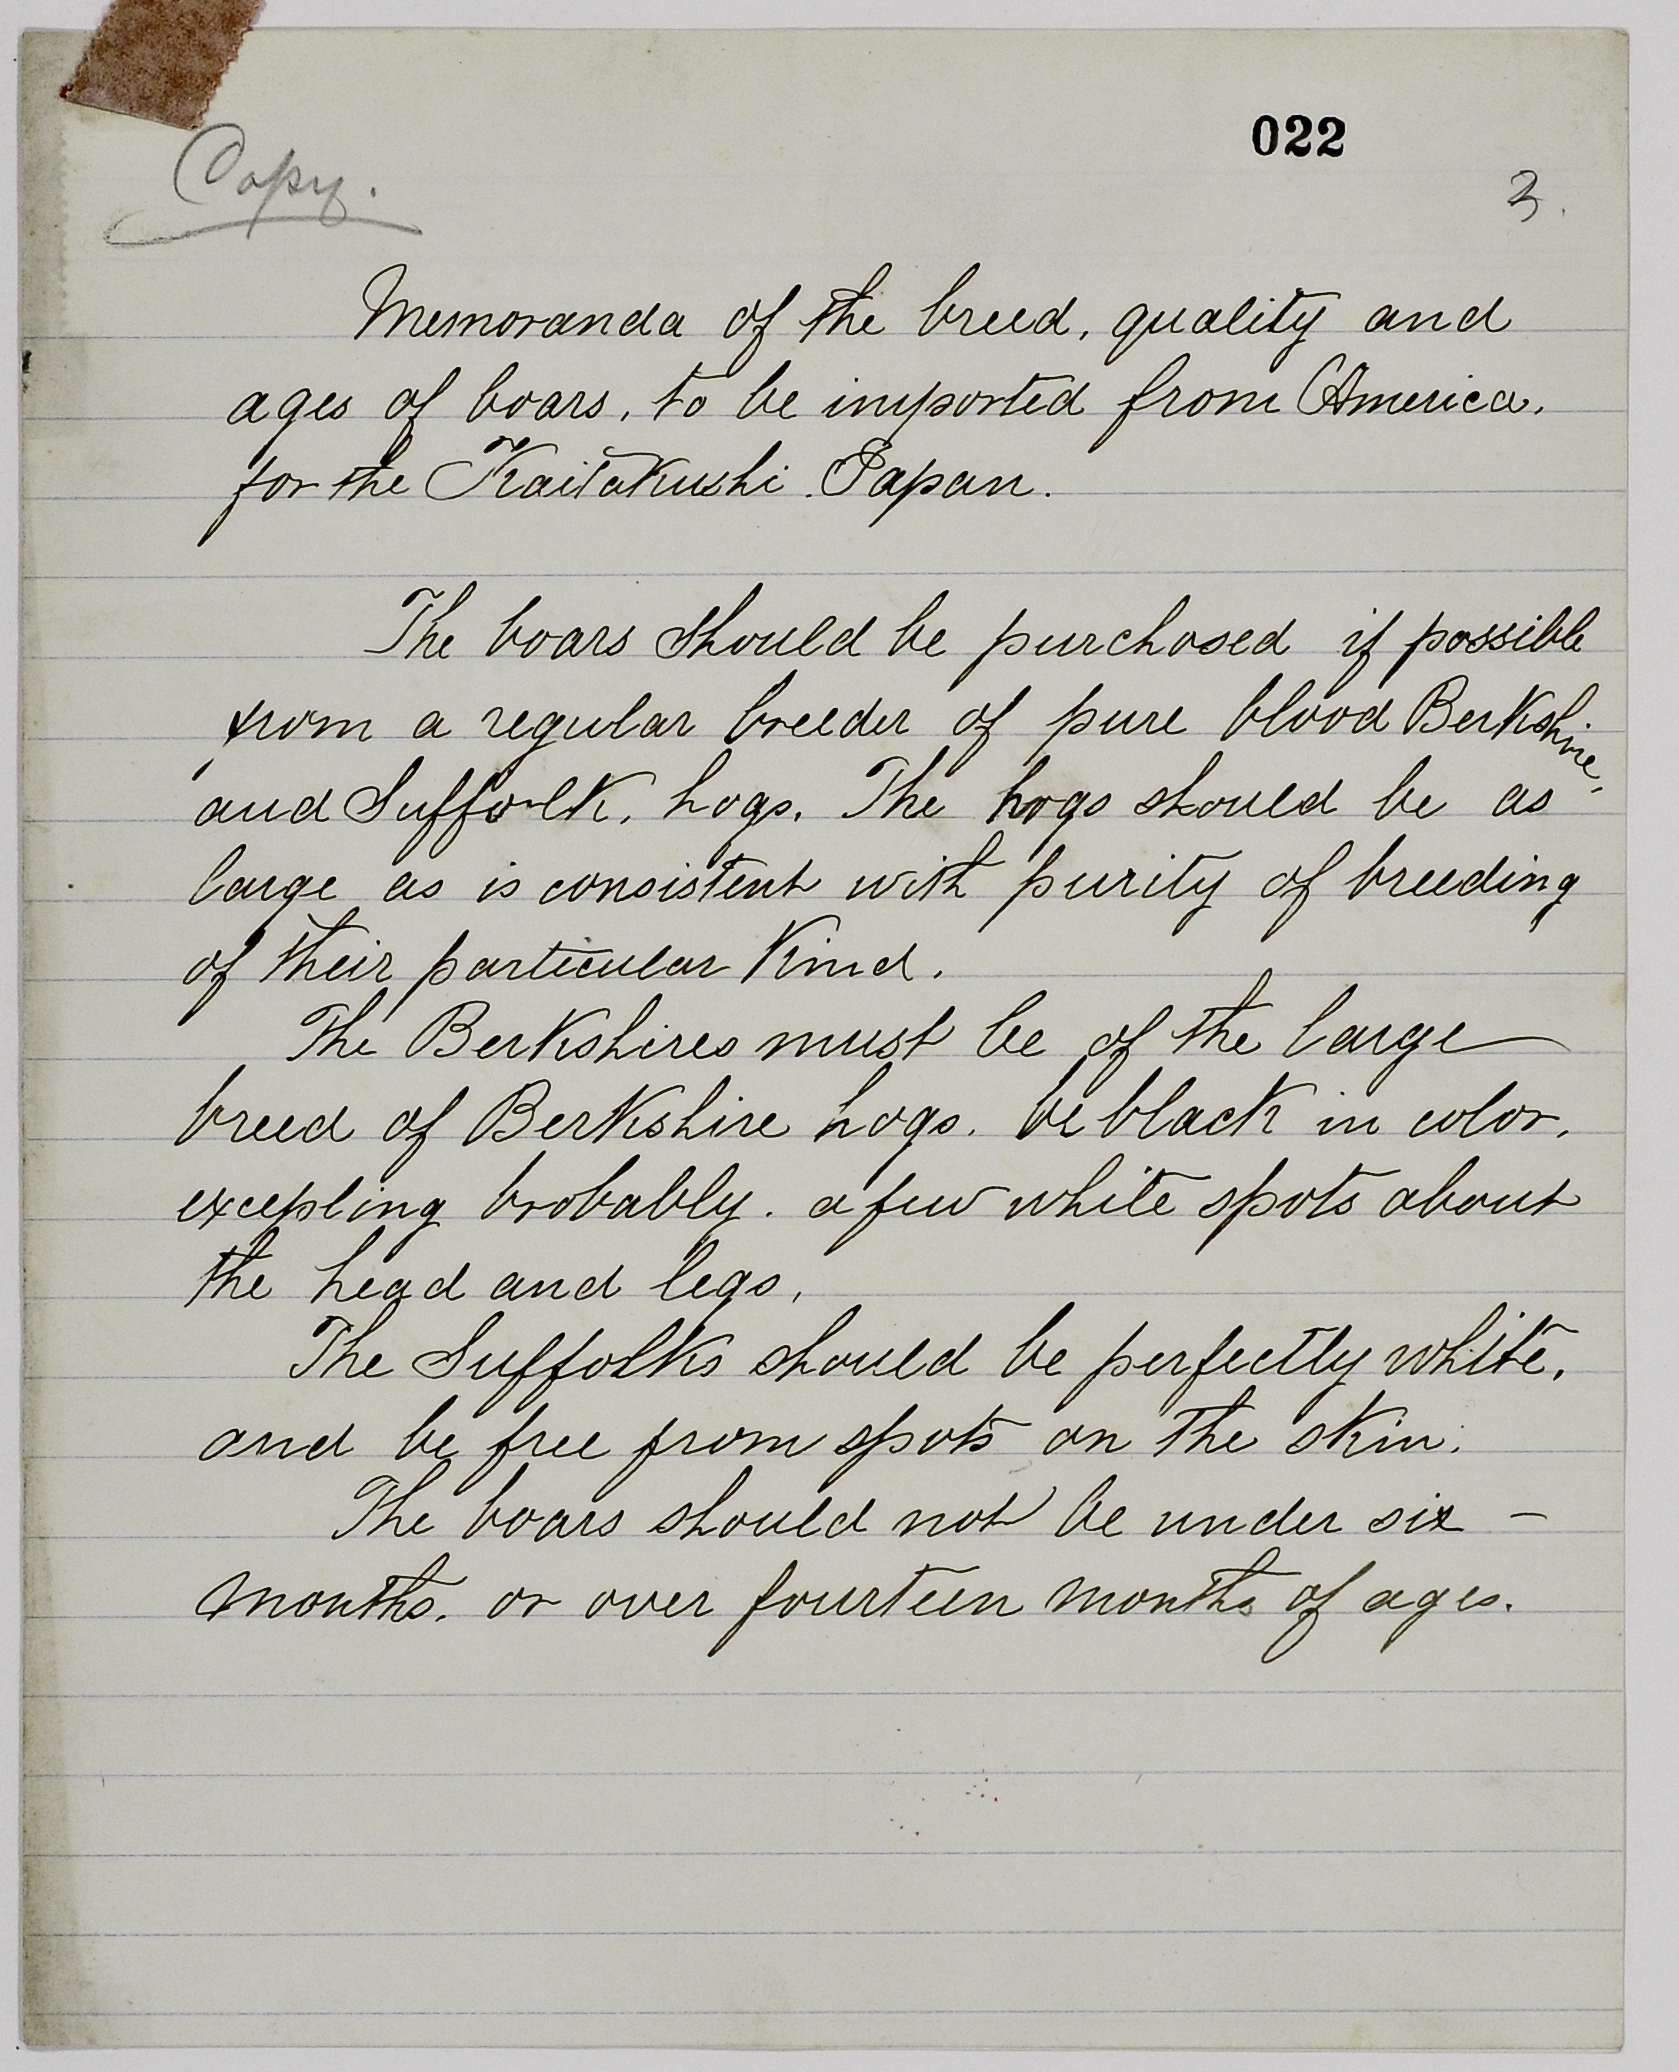 022
Copy.
3.
Memoranda of the breed, quality and
ages of boars, to be imported from America,
for the Kaitakushi Japan.
The boars should be purchased if possible
from a regular breeder of pure blood Berkshire,
and Suffolk, hogs. The hogs should be as
large as is consistent with purity of breeding
of their particular Kind.
The Berkshires must be of the large
breed of Berkshire hogs. be black in color,
excepting brobably. a few white spots about
the head and legs,
The Suffolks should be perfectly white,
and be free from spots on the skin.
The boars should not be under six –
months. or over fourteen months of ages.